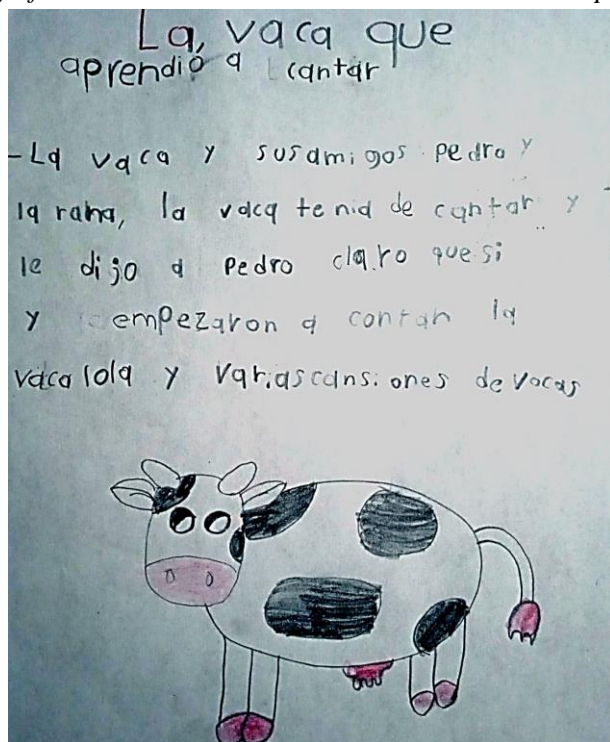 La, vaca que
aprendio a cantar
-La vaca y susamigos pedro y
la rana, la vaca tenia de cantar y
le dijo a Pedro claro que si
y empezaron a contan la
vaca lola y varias cansiones de vocas